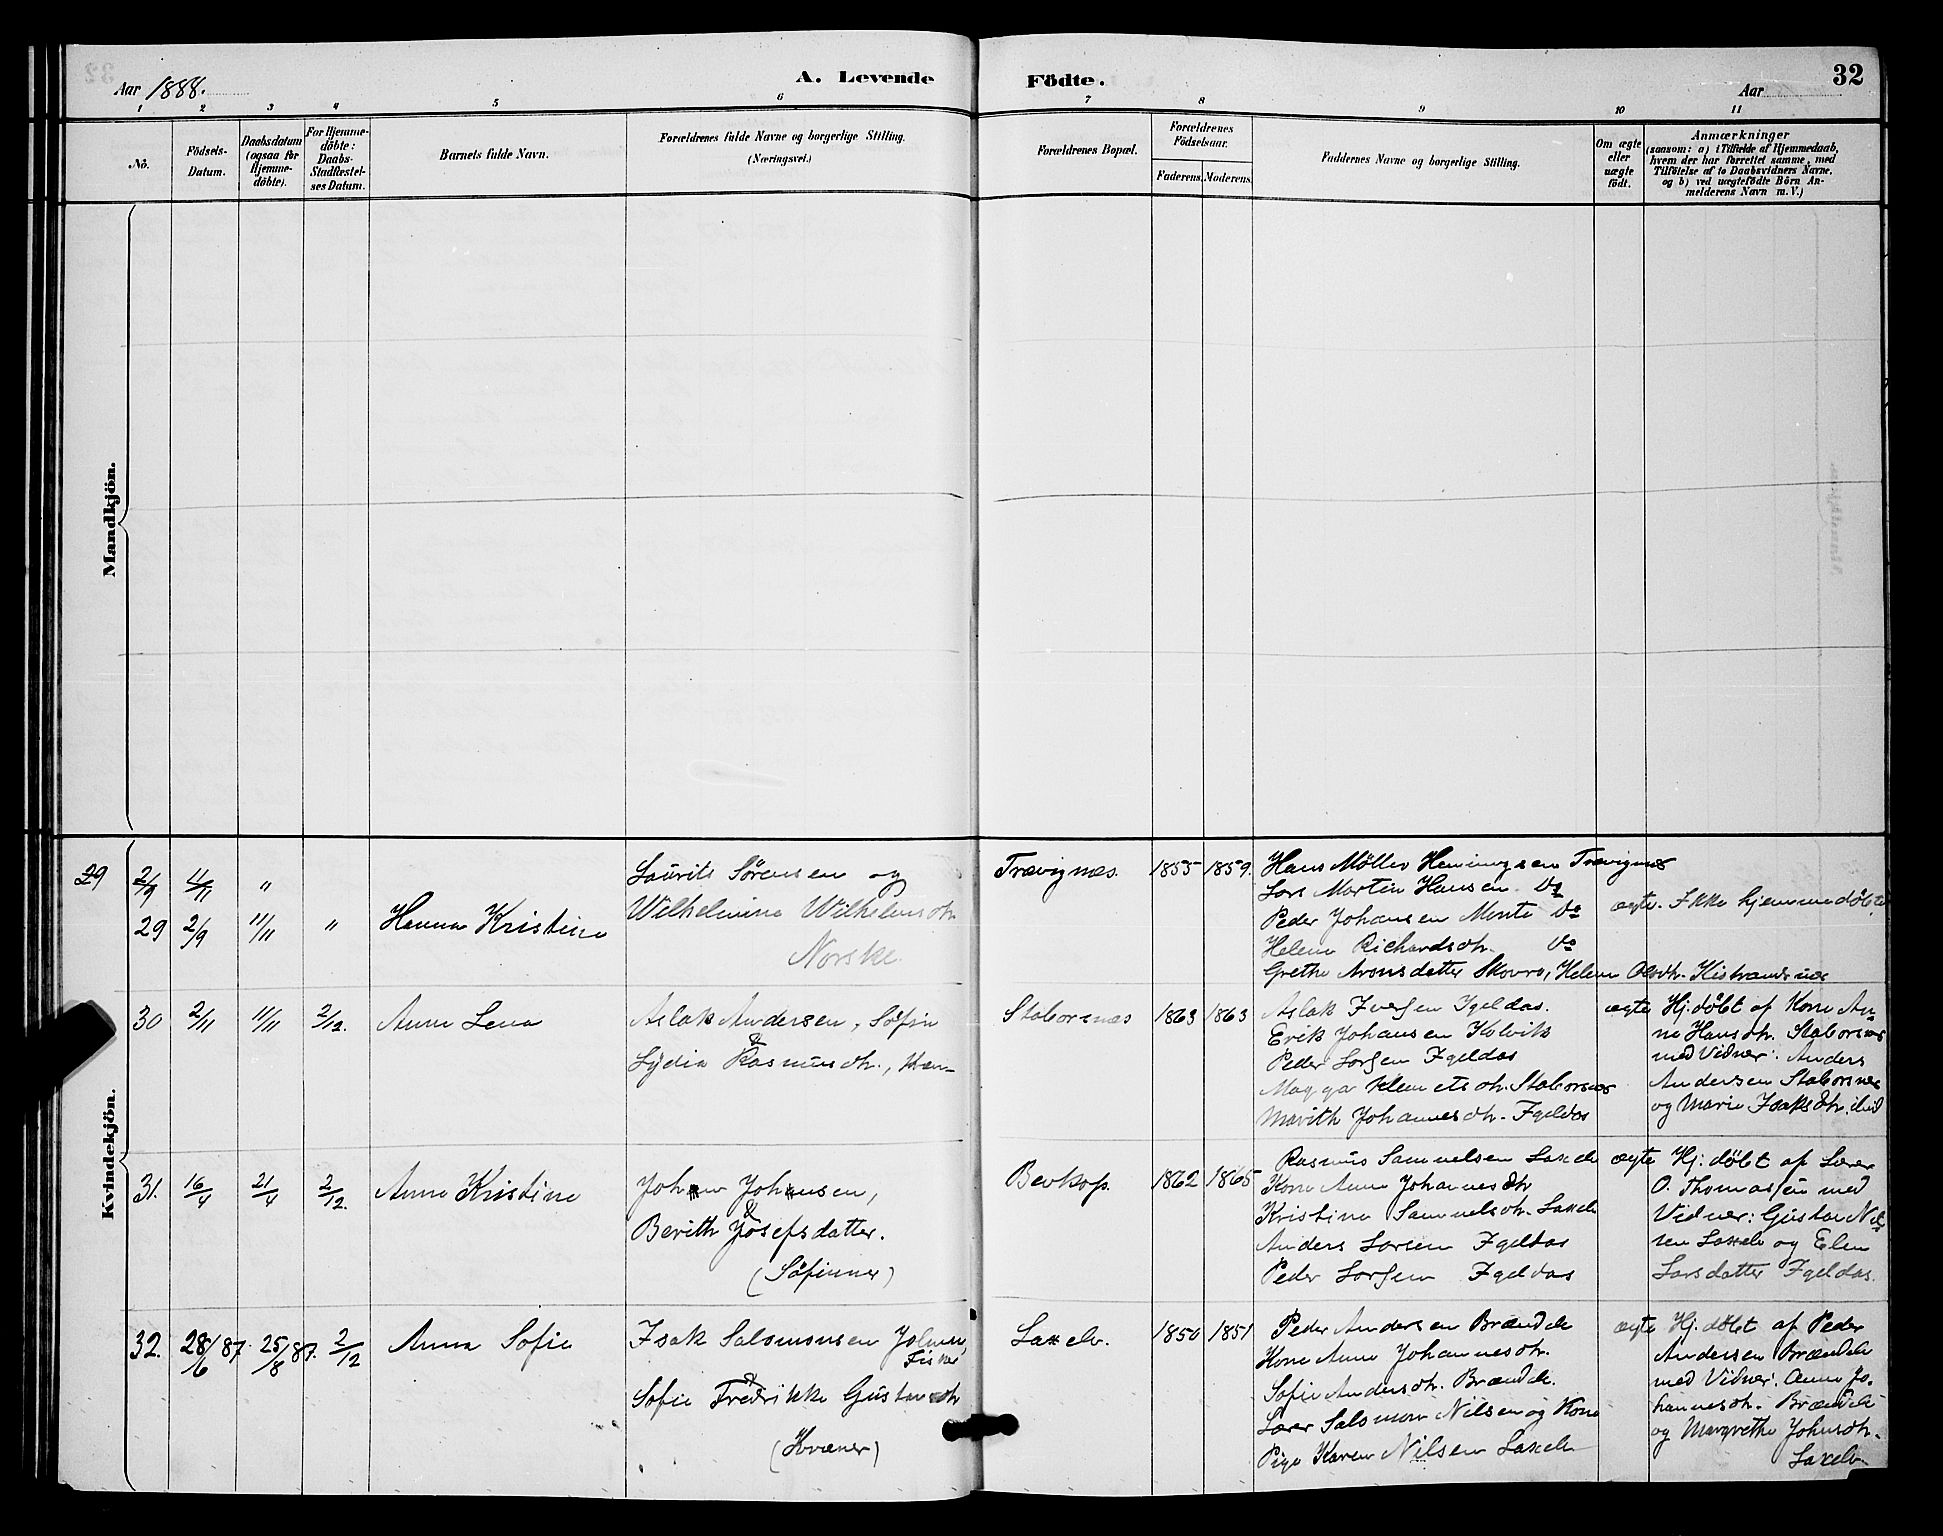 Aar 1888.
A. Levende
Födte.
Aar
32
1 2 3 4 5 6 7 8 9 10 11
No.
Födsels-
Datum.
Daabsdatum
(ogsaa for
Hjemme-
döbte).
For Hjemme-
döbte:
Daabs-
Stadfæstel-
ses Datum.
Barnets fulde Navn.
Forældrenes fulde Navne og borgerlige Stilling.
(Næringsvei.)
Forældrenes Bopæl.
Forældrenes
Födselsaar.
Faderens. Moderens.
Faddernes Navne og borgerlige Stilling.
Om ægte
eller
uægte
födt.
Anmærkninger
(saasom: a) i Tilfælde af Hjemmedaab,
hvem der har forrettet samme, med
Tilföielse af to Daabsvidners Navne,
og b) ved uægtefödte Börn An-
melderens Navn m. V.)
Mandkjön.
Kvindekjön.
29 2/9 11/11 "
29 2/9 11/11 "
Hanna Kristine
Laurits Sörensen og
Wilhelmina Wilhelmsdtr.
Norske.
Trævignæs.
1855 1859.
Hans Møller Henningsen Trævignæs
Lars Martin Hansen Do
Peder Johansen Monte Do
Helene Richardsdtr. Do
Grethe Aronsdatter Skovro, Helene Olsdtr. Kistrandnæs
ægte. Ikke hjemmedöbte
30 2/11 11/11 2/12.
Anne Lena
Aslak Andersen, Söfin
&
Lydia Rasmusdtr., Kvæn-
Staborsnæs
1863 1863
Aslak Iversen Igeldas.
Erik Johansen Kolvik
Peder Larsen Igeldas
Magga Klemetsdtr. Staborsnæs
Marith Johannesdtr. Igeldas
ægte
Hj. döbt af Kone An-
ne Hansdtr. Staborsnæs
med Vidner: Anders
Andersen Staborsnæs
og Marie Isaksdtr. ibid
31. 16/4 21/4 2/12.
Anne Kristine
Johan Johansen,
&
Berith Josefsdatter.
(Söfinner)
Bevkop.
1862 1865
Rasmus Samuelsen Laxelv
Kone Anne Johannesdtr
Kristine Samuelsdtr. Laxelv
Anders Larsen Igeldas
Peder Larsen Igeldas
ægte
Hj. döbt af Lærer
O. Thomassen med
Vidner: Gustav Nil-
sen Laxelv og Elen
Larsdatter Igeldas.
32. 28/6 87. 25/8 87. 2/12
Anna Sofie
Isak Salomonsen
Fisker
&
Sofie Fredrikke Gustavsdtr
(Kvæner)
Laxelv.
1850 1851
Peder Andersen Brændelv
Kone Anne Johannesdtr.
Sofie Andersdtr. Brændelv.
Lærer Salomon Nilsen og Kone
Pige Karen Nilsen Laxelv
ægte
Hj. döbt af Peder
Andersen Brændelv
med Vidner: Anne Jo-
hannesdtr. Brændelv
og Margrethe Johnsdtr.
Laxelv